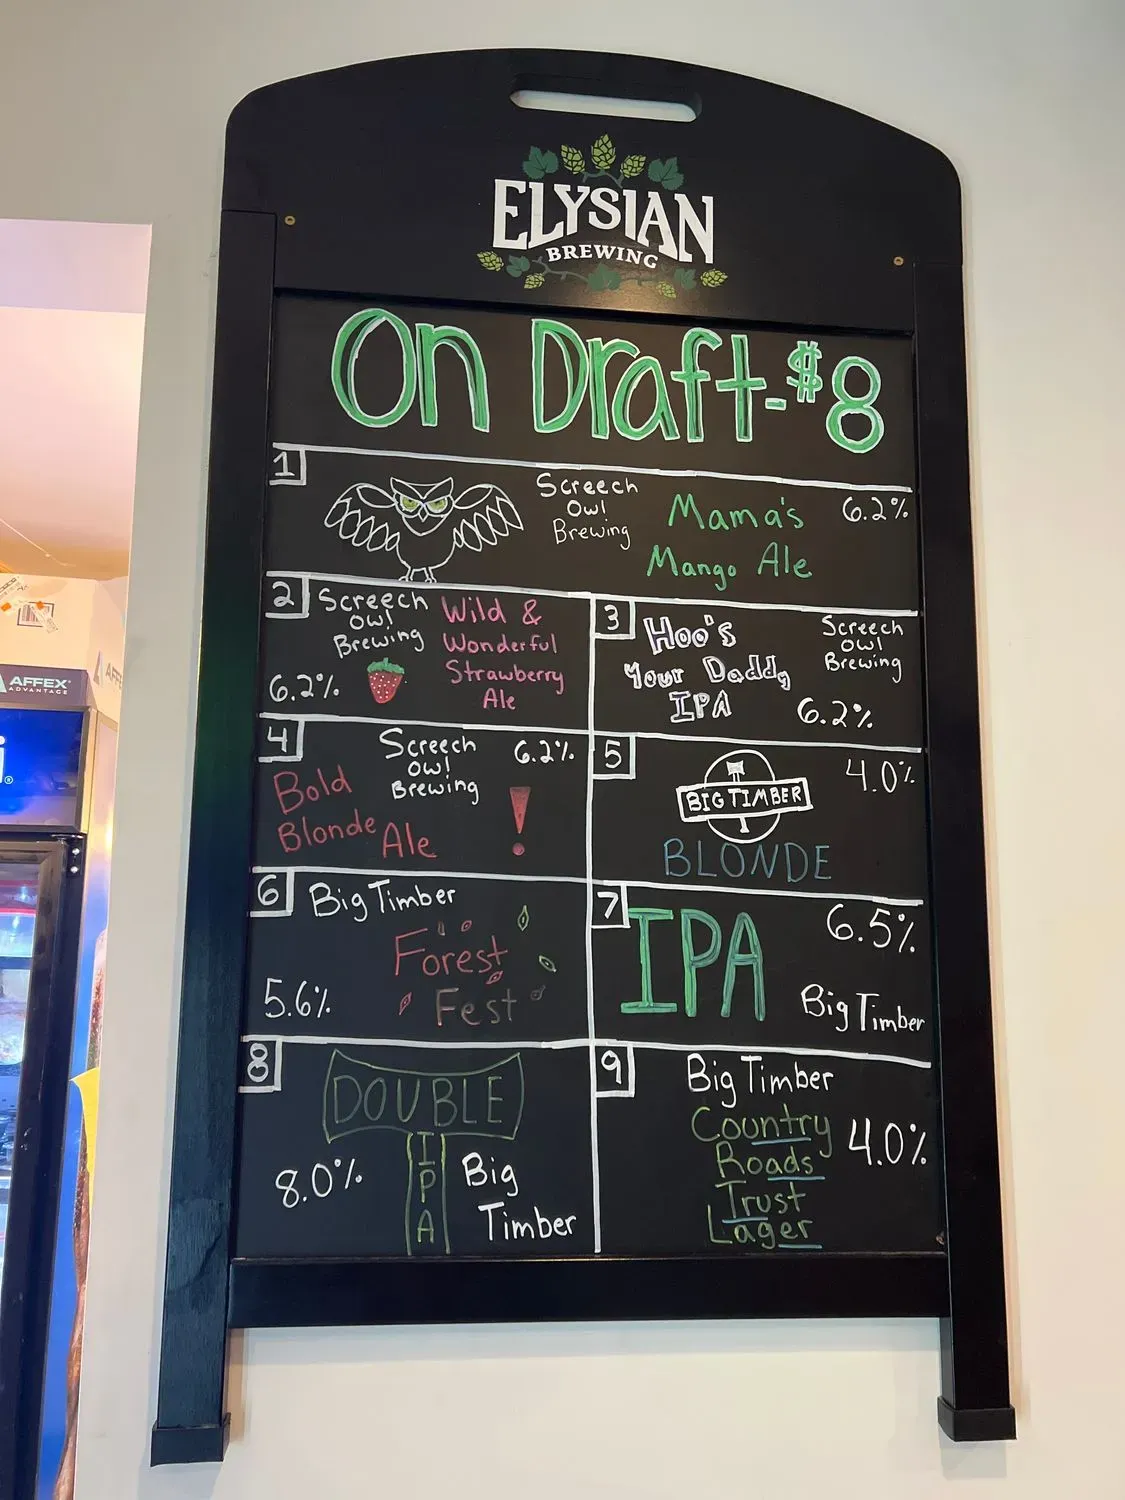 ELYSIAN
BREWING
On Draft-$8
1
Screech
Owl
Brewing
Mama's
Mango Ale
6.2%
2
Screech
Owl
Brewing
Wild &
Wonderful
Strawberry
Ale
6.2%
3
Hoo's
Your Daddy
IPA
Screech
Owl
Brewing
6.2%
4
Screech
Owl
Brewing
6.2%
Bold
Blonde Ale
!
5
BIG TIMBER
4.0%
BLONDE
6
Big Timber
Forest
Fest
5.6%
7
IPA
6.5%
Big Timber
8
DOUBLE
IPA
8.0%
Big
Timber
9
Big Timber
Country
Roads
Trust
Lager
4.0%
AFFEX
ADVANTAGE
AFFEX